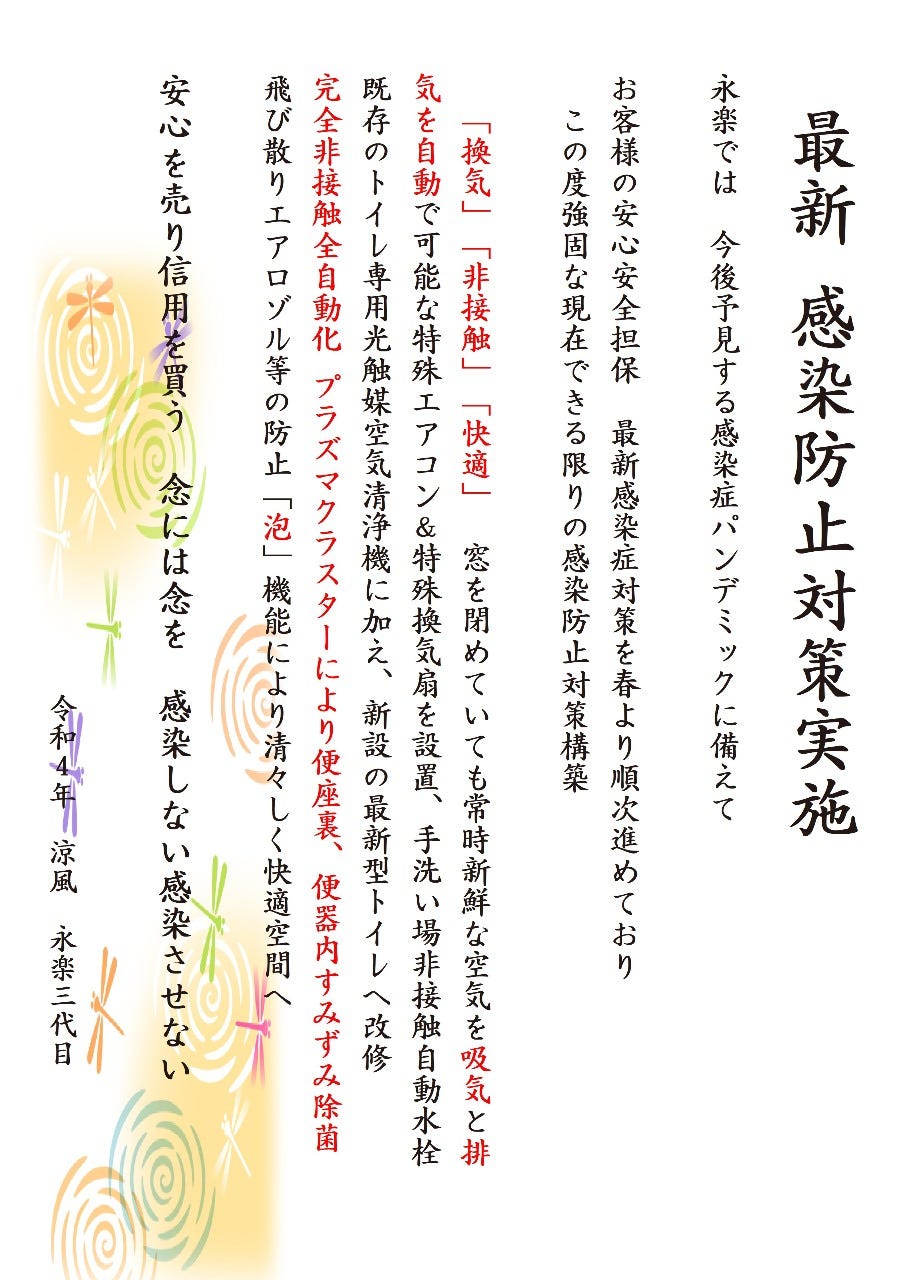 最新 感染防止対策実施
永楽では 今後予見する感染症パンデミックに備えて
お客様の安心安全担保 最新感染症対策を春より順次進めており
この度強固な現在できる限りの感染防止対策構築
「換気」「非接触」「快適」 窓を閉めていても常時新鮮な空気を吸気と排
気を自動で可能な特殊エアコン＆特殊換気扇を設置、手洗い場非接触自動水栓
既存のトイレ専用光触媒空気清浄機に加え、新設の最新型トイレへ改修
完全非接触全自動化 プラズマクラスターにより便座裏、便器内すみずみ除菌
飛び散りエアロゾル等の防止「泡」機能により清々しく快適空間へ
安心を売り信用を買う 念には念を 感染しない感染させない
令和4年 涼風 永楽三代目